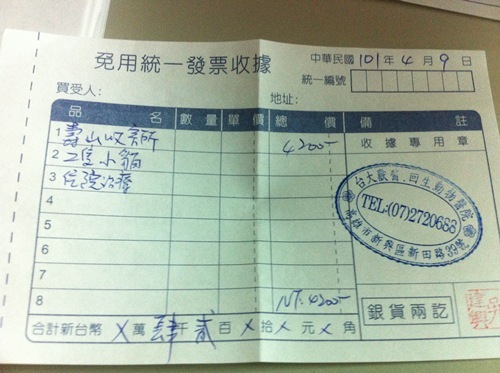 免用統一發票收據
中華民國 101 年 4 月 9 日
統一編號
買受人:
地址:
品 名 數量 單價 總 價 備 註
1 壽山收容所 4200- 收據專用章
2 二隻小貓
3 住院治療
4
5
6
7
8 NT:4200-
台大獸醫.回生動物醫院
TEL:(07)2720688
高雄市新興區新田路39號
銀貨兩訖
合計新台幣 X 萬 肆 千 貳 百 X 拾 X 元 X 角